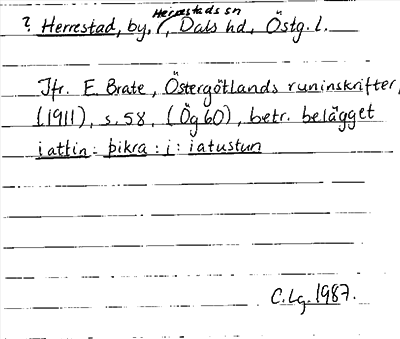 ? Herrestad, by, Herrestads sn, Dals hd, Östg. l.
Jfr. E. Brate, Östergötlands runinskrifter,
(1911), s. 58, (Ög 60), betr. belägget
iattin : þikra : i : iatustun
C. Lg. 1987.